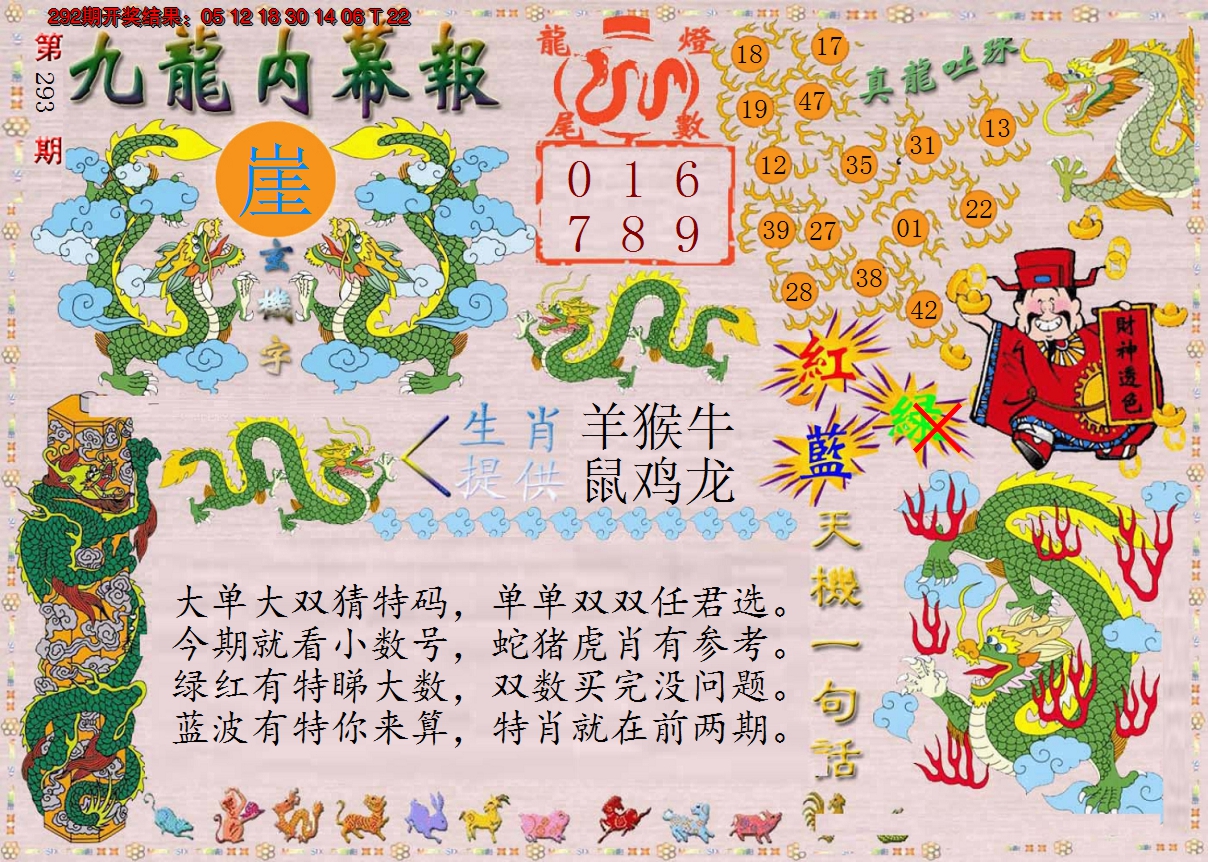 292期开奖结果：05 12 18 30 14 06 T 22
第293期
九龍内幕報
崖
玄機字
龍燈
尾數
0 1 6
7 8 9
真龍吐珠
18
17
19
47
13
31
12
35
22
39
27
01
38
28
42
財神透色
紅
綠
藍
生肖
提供
羊猴牛
鼠鸡龙
天機一句话
大单大双猜特码，单单双双任君选。
今期就看小数号，蛇猪虎肖有参考。
绿红有特睇大数，双数买完没问题。
蓝波有特你来算，特肖就在前两期。